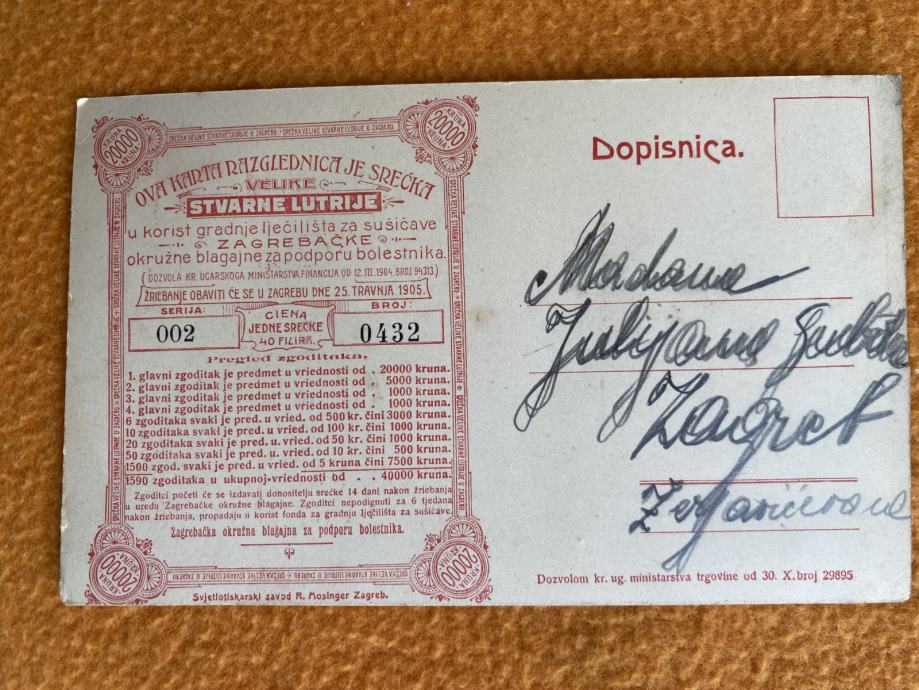 20000 KRUNA KRUNA
SREĆKA VELIKE STVARNE LUTRIJE U ZAGREBU
SREĆKA VELIKE STVARNE LUTRIJE U ZAGREBU
20000 KRUNA KRUNA
OVA KARTA RAZGLEDNICA JE SREĆKA
VELIKE
STVARNE LUTRIJE
u korist gradnje lječilišta za sušičave
ZAGREBAČKE
okružne blagajne za podporu bolestnika.
(DOZVOLA KR. UGARSKOGA MINISTARSTVA FINANCIJA OD 12. III. 1904. BROJ 94313.)
ŽRIEBANJE OBAVITI ĆE SE U ZAGREBU DNE 25. TRAVNJA 1905.
SERIJA:
002
CIENA
JEDNE SREĆKE
40 FILIRA.
BROJ:
0432
Pregled zgoditaka.
1. glavni zgoditak je predmet u vriednosti od . 20000 kruna.
2. glavni zgoditak je predmet u vriednosti od . 5000 kruna.
3. glavni zgoditak je predmet u vriednosti od . 1000 kruna.
4. glavni zgoditak je predmet u vriednosti od . 1000 kruna.
6 zgoditaka svaki je pred. u vried. od 500 kr. čini 3000 kruna.
10 zgoditaka svaki je pred. u vried. od 100 kr. čini 1000 kruna.
20 zgoditaka svaki je pred. u vried. od 50 kr. čini 1000 kruna.
50 zgoditaka svaki je pred. u vried. od 10 kr. čini 500 kruna.
1500 zgod. svaki je pred. u vried. od 5 kruna čini 7500 kruna.
1590 zgoditaka u ukupnoj vriednosti od . 40000 kruna.
Zgoditci početi će se izdavati donositelju srećke 14 dani nakon žriebanja
u uredu Zagrebačke okružne blagajne. Zgoditci nepodignuti za 6 tjedana
nakon žriebanja, propadaju u korist fonda za gradnju lječilišta za sušičave.
Zagrebačka okružna blagajna za podporu bolestnika.
20000 KRUNA KRUNA
20000 KRUNA KRUNA
Svjetlotiskarski zavod R. Mosinger Zagreb.
Dopisnica.
Madama
Julijana
Zagreb
Dozvolom kr. ug. ministarstva trgovine od 30. X. broj 29895